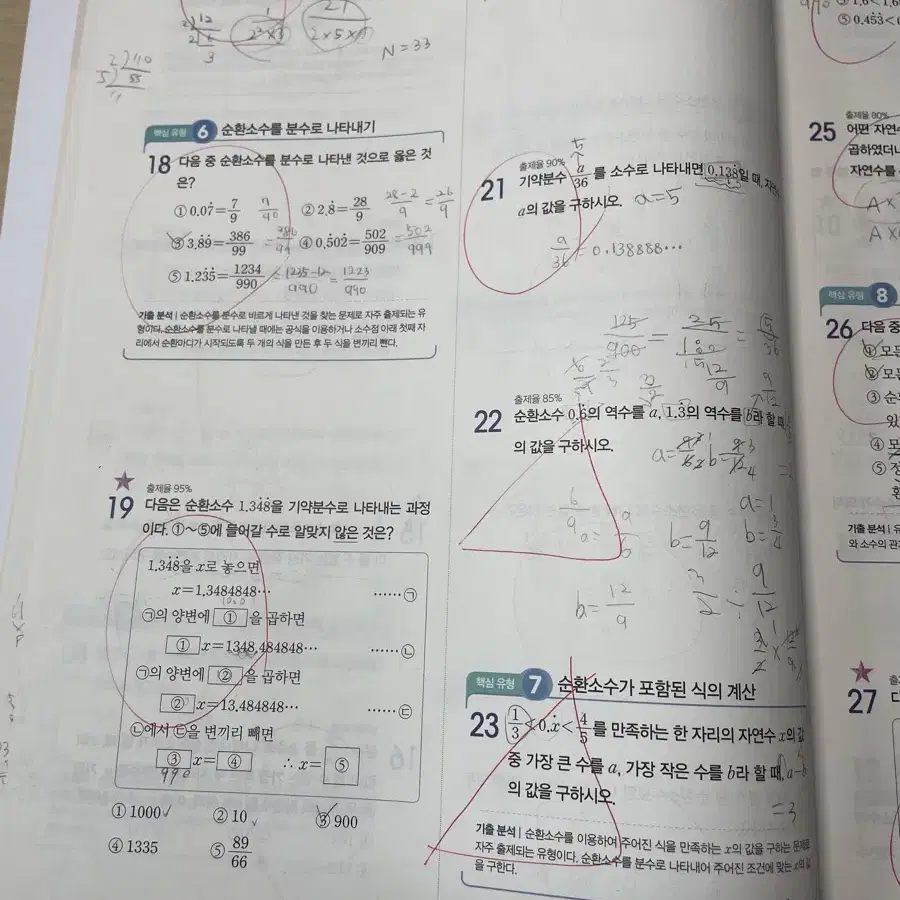 2)12
2)6
3
1
2²×3
21
2×5×
N=33
2)110
5)55
핵심 유형 6 순환소수를 분수로 나타내기
18 다음 중 순환소수를 분수로 나타낸 것으로 옳은 것
은?
① 0.07̇=7/9 7/90 ② 2.8̇=28/9 28-2/9=26/9
③ 3.8̇9̇=386/99 =386/99 ④ 0.5̇02̇=502/909 =502/999
⑤ 1.23̇5̇=1234/990 =1235-12/990=1223/990
기출 분석 | 순환소수를 분수로 바르게 나타낸 것을 찾는 문제로 자주 출제되는 유
형이다. 순환소수를 분수로 나타낼 때에는 공식을 이용하거나 소수점 아래 첫째 자
리에서 순환마디가 시작되도록 두 개의 식을 만든 후 두 식을 변끼리 뺀다.
출제율 95%
19 다음은 순환소수 1.34̇8̇을 기약분수로 나타내는 과정
이다. ①~⑤에 들어갈 수로 알맞지 않은 것은?
1.34̇8̇을 x로 놓으면
x=1.3484848⋯ ⋯⋯㉠
㉠의 양변에 ① 을 곱하면
① x=1348.484848⋯ ⋯⋯㉡
㉠의 양변에 ② 을 곱하면
② x=13.484848⋯ ⋯⋯㉢
㉡에서 ㉢을 변끼리 빼면
③ x= ④ ∴ x= ⑤
990
① 1000 ② 10 ③ 900
④ 1335 ⑤ 89/66
출제율 90%
5
21 기약분수 a/36를 소수로 나타내면 0.138̇일 때, 자연
a의 값을 구하시오. a=5
a/36=0.138888⋯
125/900=25/180=5/36
12/9
출제율 85%
22 순환소수 0.6̇의 역수를 a, 1.3̇의 역수를 b라 할 때
의 값을 구하시오.
a=1
6/9
b=9/12 b=3/4
b=12/9
3/2÷9/12
핵심 유형 7 순환소수가 포함된 식의 계산
23 1/3<0.ẋ<4/5를 만족하는 한 자리의 자연수 x의 값
중 가장 큰 수를 a, 가장 작은 수를 b라 할 때, a-b
의 값을 구하시오.
=3
기출 분석 | 순환소수를 이용하여 주어진 식을 만족하는 x의 값을 구하는 문제로
자주 출제되는 유형이다. 순환소수를 분수로 나타내어 주어진 조건에 맞는 x의 값
을 구한다.
⑤ 0.45̇3̇<
출제율 80%
25 어떤 자연수
곱하였더니
자연수를
핵심 유형 8
26 다음 중
① 모든
② 모든
③ 순환
있
④ 모
⑤ 정
환
기출 분석 | 유
와 소수의 관
27 다